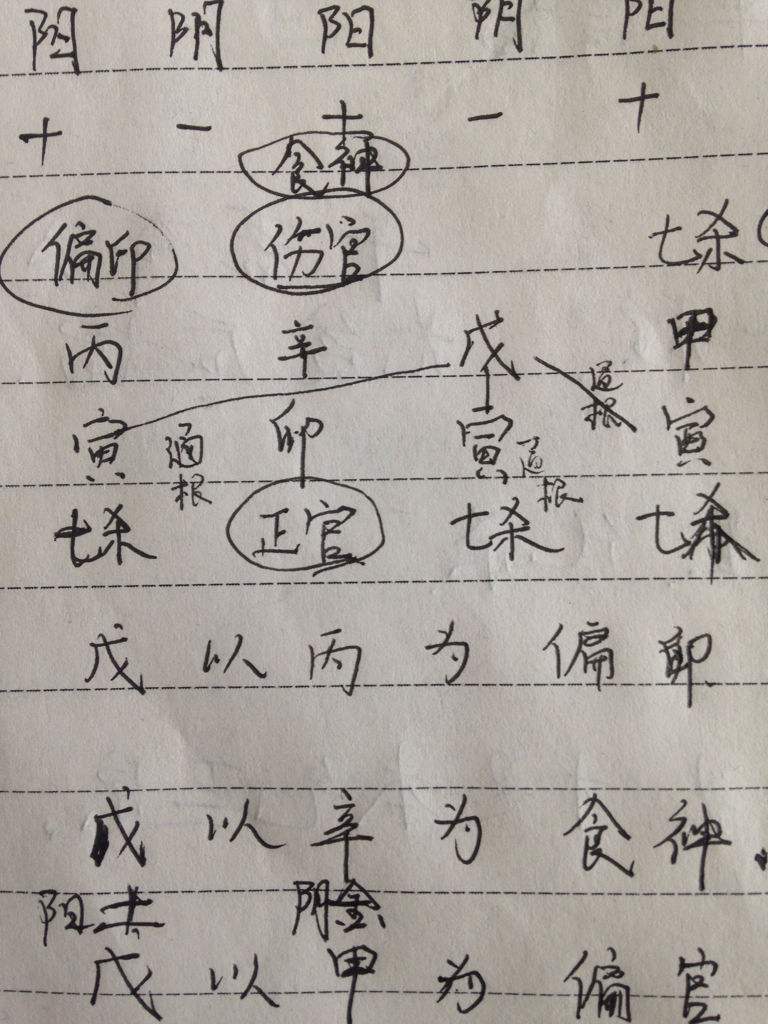 阳 阴 阳 阴 阳
+ - + - +
食神
偏印 伤官 七杀
丙 辛 戊 甲
通根
寅 卯 寅 寅
通根 通根
七杀 正官 七杀 七杀
戊以丙为偏印
戊以辛为食神.
阳土 阴金
戊以甲为偏官